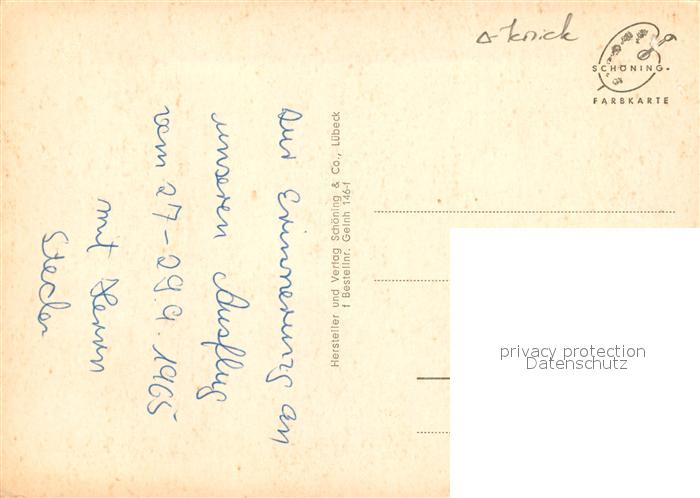 Zur Erinnerung an
unseren Ausflug
vom 27-29.9.1965
mit Herrn
Stecler
Hersteller und Verlag Schöning & Co., Lübeck
f Bestellnr. Gelnh 146-f
knick
SCHÖNING
FARBKARTE
privacy protection
Datenschutz